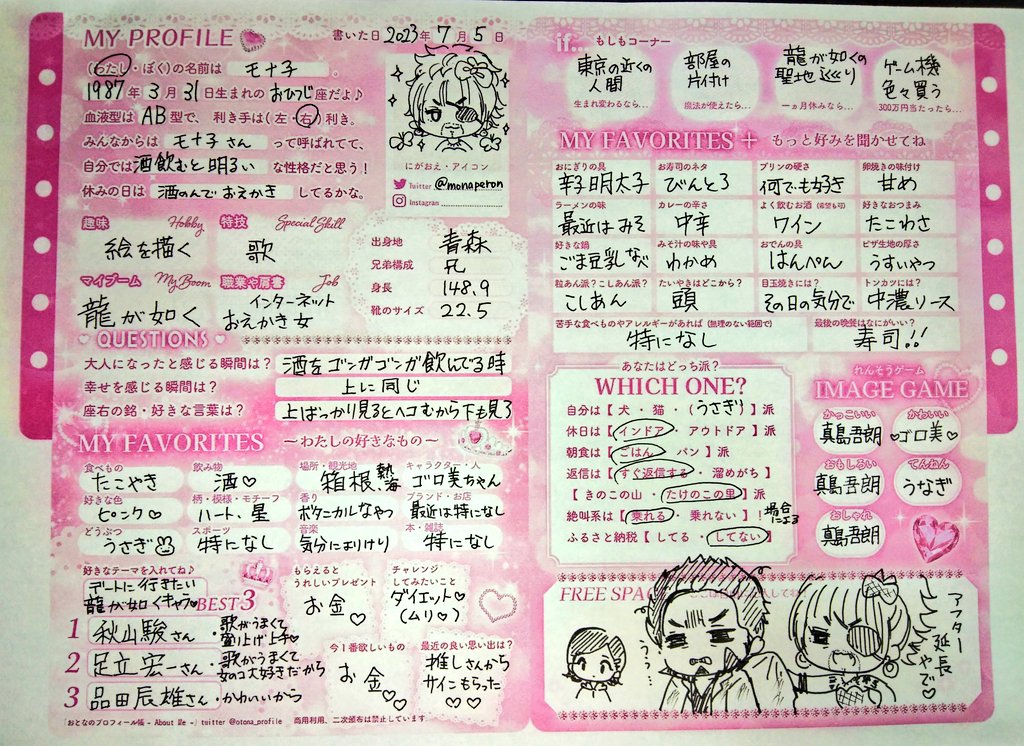 MY PROFILE
書いた日 2023年 7月 5日
(わたし・ぼく)の名前は モナ子 。
1987年 3月 31日生まれの おひつじ座だよ♪
血液型は AB型で、利き手は(左・右)利き。
みんなからは モナ子さん って呼ばれてて、
自分では 酒飲むと明るい な性格だと思う！
休みの日は 酒のんでおえかき してるかな。
にがおえ・アイコン
Twitter @monaperon
Instagram
趣味 Hobby
絵を描く
特技 Special Skill
歌
マイブーム My Boom
龍が如く
職業や肩書 Job
インターネット
おえかき女
出身地 青森
兄弟構成 兄
身長 148.9
靴のサイズ 22.5
QUESTIONS
大人になったと感じる瞬間は？ 酒をゴンガゴンガ飲んでる時
幸せを感じる瞬間は？ 上に同じ
座右の銘・好きな言葉は？ 上ばっかり見るとヘコむから下も見ろ
MY FAVORITES ～わたしの好きなもの～
食べもの たこやき
飲み物 酒♡
場所・観光地 箱根、熱海
キャラクター・人 ゴロ美ちゃん
好きな色 ピンク♡
柄・模様・モチーフ ハート、星
香り ボタニカルなやつ
ブランド・お店 最近は特になし
どうぶつ うさぎ
スポーツ 特になし
音楽 気分によりけり
本・雑誌 特になし
好きなテーマを入れてね♪
デートに行きたい
龍が如くキャラ♡ BEST3
1 秋山駿さん・歌がうまくて
盛り上げ上手♡
2 足立宏一さん・歌がうまくて
女のコ大好きだから
3 品田辰雄さん・かわいいから
もらえると
うれしいプレゼント
お金♡
チャレンジ
してみたいこと
ダイエット♡
(ムリ♡)
今1番欲しいもの
お金♡
最近の良い思い出は？
推しさんから
サインもらった
♡♡
「おとなのプロフィール帳 - About Me -」twitter @otona_profile 商用利用、二次頒布は禁止しています
if... もしもコーナー
東京の近くの
人間
生まれ変わるなら...
部屋の
片付け
魔法が使えたら...
龍が如くの
聖地巡り
一ヵ月休みなら...
ゲーム機
色々買う
300万円当たったら...
MY FAVORITES + もっと好みを聞かせてね
おにぎりの具 辛子明太子
お寿司のネタ びんとろ
プリンの硬さ 何でも好き
卵焼きの味付け 甘め
ラーメンの味 最近はみそ
カレーの辛さ 中辛
よく飲むお酒 ワイン
好きなおつまみ たこわさ
好きな鍋 ごま豆乳なべ
みそ汁の味や具 わかめ
おでんの具 はんぺん
ピザ生地の厚さ うすいやつ
粒あん派？こしあん派？ こしあん
たいやきはどこから？ 頭
目玉焼きには？ その日の気分で
トンカツには？ 中濃ソース
苦手な食べものやアレルギーがあれば (無理のない範囲で) 特になし
最後の晩餐はなにがいい？ 寿司!!
あなたはどっち派？
WHICH ONE?
自分は【 犬・猫・(うさぎ) 】派
休日は【 インドア ・ アウトドア 】派
朝食は【 ごはん ・ パン 】派
返信は【 すぐ返信する ・ 溜めがち 】
【 きのこの山 ・ たけのこの里 】派
絶叫系は【 乗れる ・ 乗れない 】！場合による
ふるさと納税【 してる ・ してない 】
れんそうゲーム
IMAGE GAME
かっこいい 真島吾朗
かわいい ♡ゴロ美♡
おもしろい 真島吾朗
てんねん うなぎ
おしゃれ 真島吾朗
FREE SPACE
うぅ…
アフター
延長
やで♡